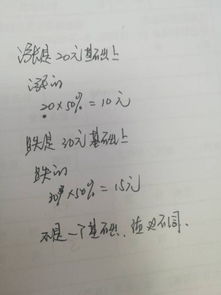 涨是20元基础上
涨的
20×50%=10元
跌是30元基础上
跌的
30×50%=15元
不是一个基础、值也不同.